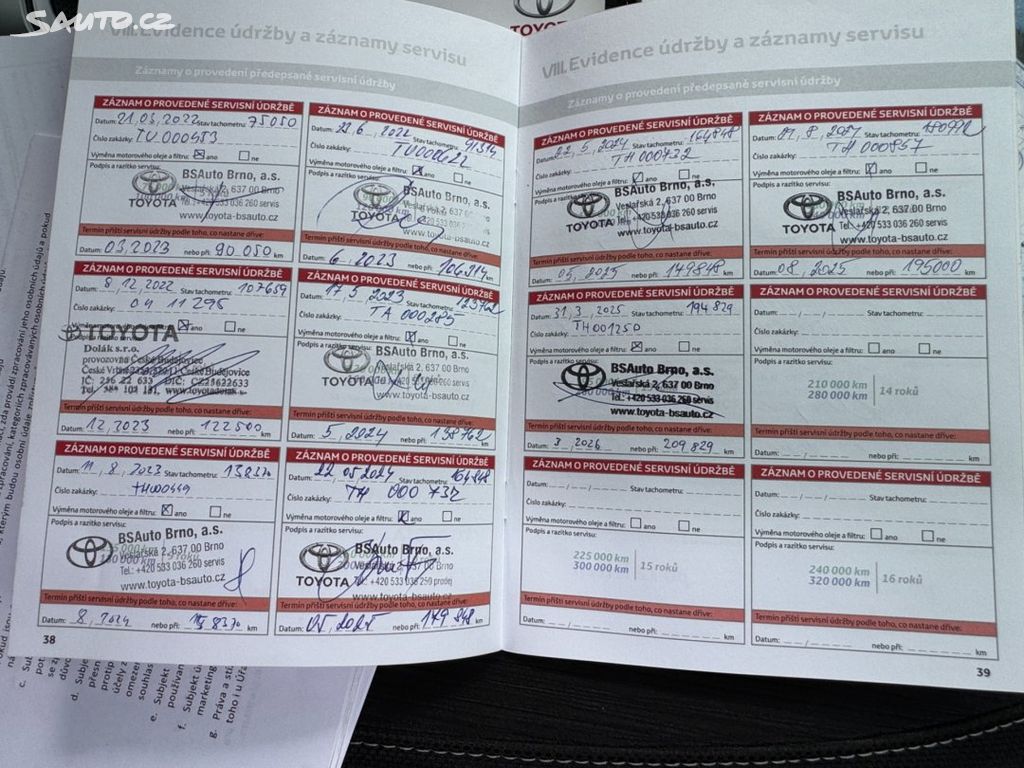 SAUTO.CZ
TOYOTA
VIII. Evidence údržby a záznamy servisu
Záznamy o provedení předepsané servisní údržby
ZÁZNAM O PROVEDENÉ SERVISNÍ ÚDRŽBĚ
Datum: 21,03,2022 Stav tachometru: 75050
Číslo zakázky: TU000453
Výměna motorového oleje a filtru: ☒ ano ☐ ne
Podpis a razítko servisu:
BSAuto Brno, a.s.
Veslařská 2, 637 00 Brno
Tel.: +420 533 036 260 servis
TOYOTA www.toyota-bsauto.cz
Termín příští servisní údržby podle toho, co nastane dříve:
Datum: 03,2023 nebo při: 90 050 km
ZÁZNAM O PROVEDENÉ SERVISNÍ ÚDRŽBĚ
Datum: 22,6,2022 Stav tachometru: 91314
Číslo zakázky: TU000622
Výměna motorového oleje a filtru: ☒ ano ☐ ne
Podpis a razítko servisu:
BSAuto Brno, a.s.
Veslařská 2, 637 00
+420 533 036 260 servis
TOYOTA
www.toyota-bsauto.cz
Termín příští servisní údržby podle toho, co nastane dříve:
Datum: 6,2023 nebo při: 106314 km
ZÁZNAM O PROVEDENÉ SERVISNÍ ÚDRŽBĚ
Datum: 8,12,2022 Stav tachometru: 107659
Číslo zakázky: 04 11296
☒ ano ☐ ne
TOYOTA
Dolák s.r.o.
provozovna České Budějovice
České Budějovice
IČ: DIČ: CZ25622633
Termín příští servisní údržby podle toho, co nastane dříve:
Datum: 12,2023 nebo při: 122 600 km
ZÁZNAM O PROVEDENÉ SERVISNÍ ÚDRŽBĚ
Datum: 17,5,2023 Stav tachometru: 123762
Číslo zakázky: TA 000285
Výměna motorového oleje a filtru: ☒ ano ☐ ne
Podpis a razítko servisu:
BSAuto Brno, a.s.
Veslařská 2, 637 00 Brno
Tel.: +420 533 036 260 servis
TOYOTA www.toyota-bsauto.cz
Termín příští servisní údržby podle toho, co nastane dříve:
Datum: 5,2024 nebo při: 138762 km
ZÁZNAM O PROVEDENÉ SERVISNÍ ÚDRŽBĚ
Datum: 11,8,2023 Stav tachometru: 138370
Číslo zakázky: TH000449
Výměna motorového oleje a filtru: ☒ ano ☐ ne
Podpis a razítko servisu:
BSAuto Brno, a.s.
Veslařská 2, 637 00 Brno
Tel.: +420 533 036 260 servis
TOYOTA www.toyota-bsauto.cz
Termín příští servisní údržby podle toho, co nastane dříve:
Datum: 8,2024 nebo při: km
ZÁZNAM O PROVEDENÉ SERVISNÍ ÚDRŽBĚ
Datum: 22 05 2024 Stav tachometru: 164848
Číslo zakázky: TH 000 732
Výměna motorového oleje a filtru: ☒ ano ☐ ne
Podpis a razítko servisu:
BSAuto Brno, a.s.
Veslařská 2, 637 00 Brno
Tel.: +420 533 036 260 prodej
TOYOTA www.toyota-bsauto.cz
Termín příští servisní údržby podle toho, co nastane dříve:
Datum: 05,2025 nebo při: 179 848 km
38
VIII. Evidence údržby a záznamy servisu
Záznamy o provedení předepsané servisní údržby
ZÁZNAM O PROVEDENÉ SERVISNÍ ÚDRŽBĚ
Datum: 22,5,2024 Stav tachometru: 164848
Číslo zakázky: TH 000732
Výměna motorového oleje a filtru: ☒ ano ☐ ne
Podpis a razítko servisu:
BSAuto Brno, a.s.
Veslařská 2, 637 00 Brno
Tel.: +420 533 036 260 servis
TOYOTA www.toyota-bsauto.cz
Termín příští servisní údržby podle toho, co nastane dříve:
Datum: 05,2025 nebo při: 179848 km
ZÁZNAM O PROVEDENÉ SERVISNÍ ÚDRŽBĚ
Datum: 01,8,2024 Stav tachometru:
Číslo zakázky: TH 000857
Výměna motorového oleje a filtru: ☒ ano ☐ ne
Podpis a razítko servisu:
BSAuto Brno, a.s.
Veslařská 2, 637 00 Brno
Tel.: +420 533 036 260 servis
TOYOTA www.toyota-bsauto.cz
Termín příští servisní údržby podle toho, co nastane dříve:
Datum: 08,2025 nebo při: 195000 km
ZÁZNAM O PROVEDENÉ SERVISNÍ ÚDRŽBĚ
Datum: 31,3,2025 Stav tachometru: 194 829
Číslo zakázky: TH001250
Výměna motorového oleje a filtru: ☒ ano ☐ ne
Podpis a razítko servisu:
BSAuto Brno, a.s.
Veslařská 2, 637 00 Brno
Tel.: +420 533 036 260 servis
TOYOTA www.toyota-bsauto.cz
Termín příští servisní údržby podle toho, co nastane dříve:
Datum: 3,2026 nebo při: 209 829 km
ZÁZNAM O PROVEDENÉ SERVISNÍ ÚDRŽBĚ
Datum: Stav tachometru:
Číslo zakázky:
Výměna motorového oleje a filtru: ☐ ano ☐ ne
Podpis a razítko servisu:
210 000 km
280 000 km
14 roků
Termín příští servisní údržby podle toho, co nastane dříve:
Datum: nebo při: km
ZÁZNAM O PROVEDENÉ SERVISNÍ ÚDRŽBĚ
Datum: Stav tachometru:
Číslo zakázky:
Výměna motorového oleje a filtru: ☐ ano ☐ ne
Podpis a razítko servisu:
225 000 km
300 000 km
15 roků
Termín příští servisní údržby podle toho, co nastane dříve:
Datum: nebo při: km
ZÁZNAM O PROVEDENÉ SERVISNÍ ÚDRŽBĚ
Datum: Stav tachometru:
Číslo zakázky:
Výměna motorového oleje a filtru: ☐ ano ☐ ne
Podpis a razítko servisu:
240 000 km
320 000 km
16 roků
Termín příští servisní údržby podle toho, co nastane dříve:
Datum: nebo při: km
39